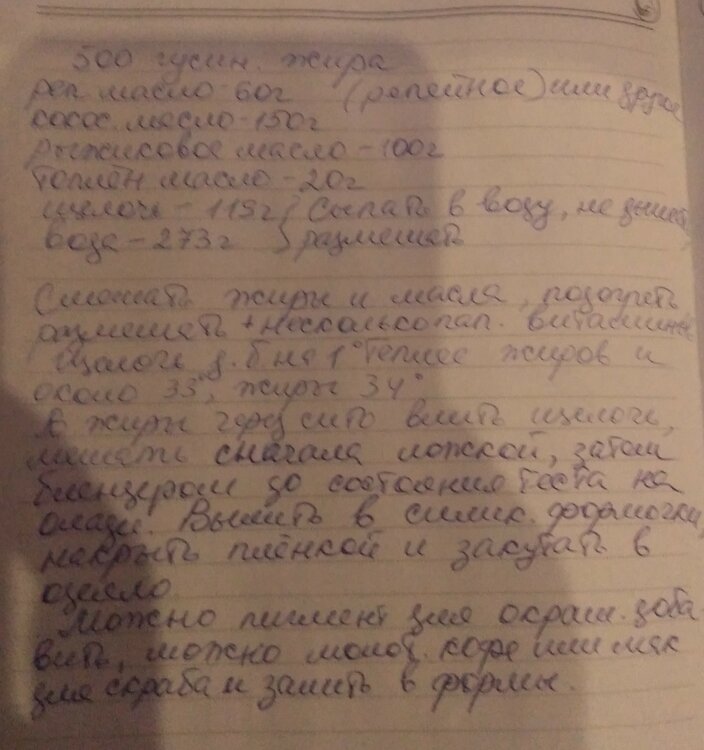 500 гусин. жира
реп. масло - 60г (репейное) или другое
кокос. масло - 150г
рыжиковое масло - 100г
топлён масло - 20г
щелочь - 119г } Сыпать в воду, не дышать
вода - 273г } размешать
Смешать жиры и масла, подогреть
размешать + несколько кап. витамина
Щелочь д. б на 1° теплее жиров и
около 33°, жиры 34°
В жиры через сито влить щелочь,
мешать сначала ложкой, затем
блендером до состояния теста на
оладьи. Вылить в силик. формочки,
накрыть плёнкой и закутать в
одеяло.
Можно пигмент для окраш. доба-
вить, можно молот. кофе или мак
для скраба и залить в формы.